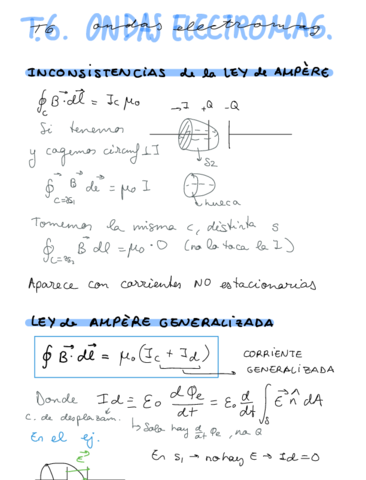 T.6. ONDAS ELECTROMAG.
ondas electromag.
INCONSISTENCIAS de la LEY de AMPÈRE
∮_C B⃗·dl⃗ = I_C μ₀
→I +Q -Q
Si tenemos
y cogemos circuf ⊥ I
S2
∮_{C=∂S₁} B⃗ dl⃗ = μ₀ I
hueca
Tomemos la misma c, distinta s
∮_{C=∂S₂} B⃗ dl = μ₀ · 0 (no la toca la I)
Aparece con corrientes NO estacionarias
LEY de AMPÈRE GENERALIZADA
∮ B⃗·dl⃗ = μ₀ (I_c + I_d)
CORRIENTE
GENERALIZADA
Donde I_d ≡ ε₀ dΦ_e/dt = ε₀ d/dt ∫_S E⃗ n̂ dA
c. de desplazam.
↳ Solo hay d/dt Φ_e, no Q
En el ej.
E⃗
En S₁ → no hay E → I_d = 0